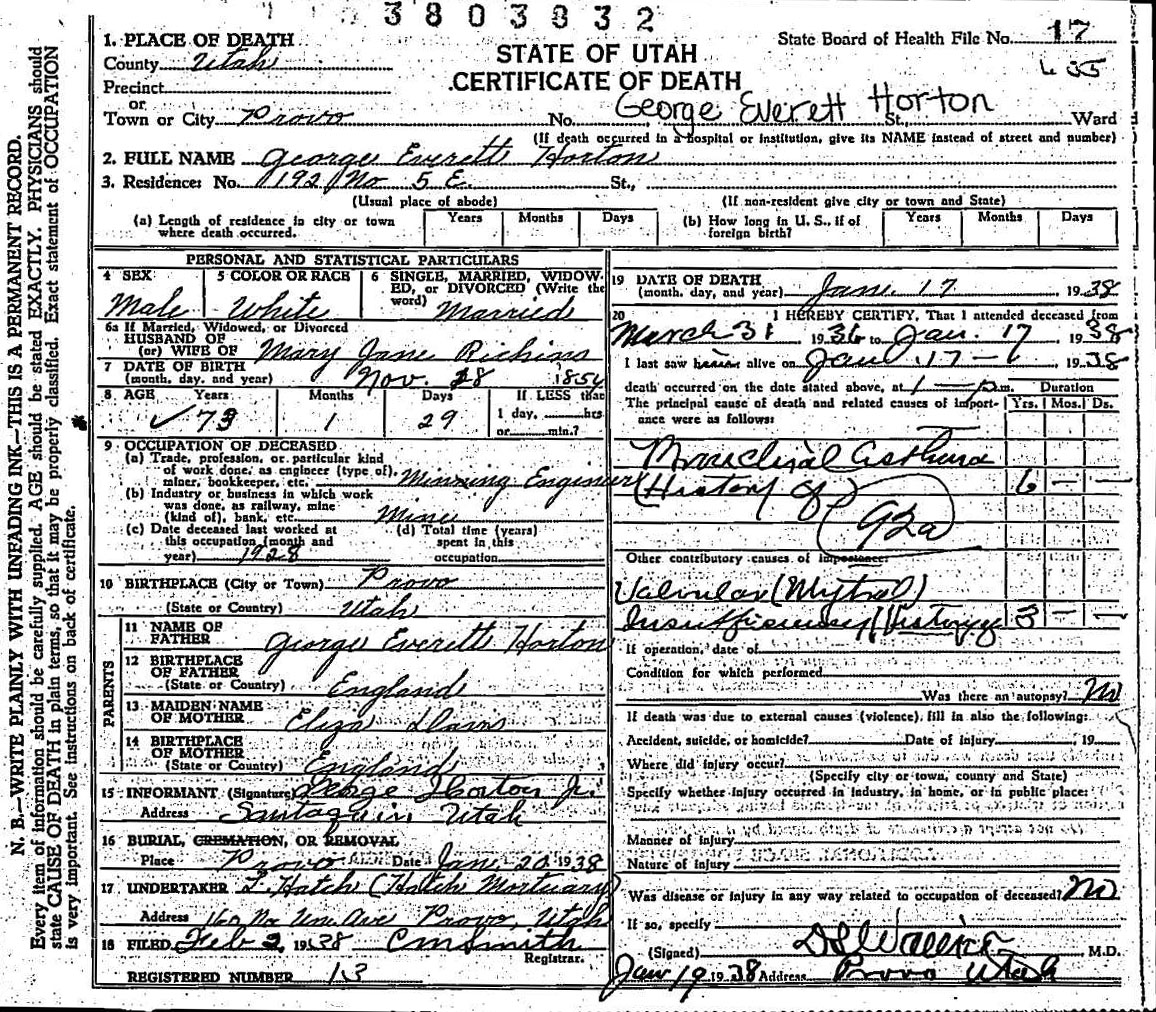 3803032
1. PLACE OF DEATH
STATE OF UTAH
State Board of Health File No. 17
County Utah
CERTIFICATE OF DEATH
Precinct
or
George Everett Horton
Town or City Provo No. St., Ward
(If death occurred in a hospital or institution, give its NAME instead of street and number)
2. FULL NAME George Everett Horton
3. Residence: No. 192 No 5 E. St.,
(Usual place of abode) (If non-resident give city or town and State)
(a) Length of residence in city or town where death occurred. Years Months Days (b) How long in U. S., if of foreign birth? Years Months Days
PERSONAL AND STATISTICAL PARTICULARS
4 SEX 5 COLOR OR RACE 6 SINGLE, MARRIED, WIDOW-
ED, or DIVORCED (Write the
word) Married
Male White
6a If Married, Widowed, or Divorced
HUSBAND OF
(or) WIFE OF Mary Jane Richins
7 DATE OF BIRTH
(month, day, and year) Nov. 28
8 AGE Years Months Days If LESS than
73 1 29 1 day, hrs
or min.?
9 OCCUPATION OF DECEASED
(a) Trade, profession, or particular kind
of work done, as engineer (type of),
miner, bookkeeper, etc. Minning Engineer
(b) Industry or business in which work
was done, as railway, mine
(kind of), bank, etc.
(c) Date deceased last worked at
this occupation (month and
year) 1928
(d) Total time (years)
spent in this
occupation
10 BIRTHPLACE (City or Town) Provo
(State or Country) Utah
PARENTS
11 NAME OF
FATHER George Everett Horton
12 BIRTHPLACE
OF FATHER
(State or Country) England
13 MAIDEN NAME
OF MOTHER Eliza Davis
14 BIRTHPLACE
OF MOTHER
(State or Country) England
15 INFORMANT (Signature) George Horton Jr.
Address Santaquin, Utah
16 BURIAL, CREMATION, OR REMOVAL
Place Provo Date Jan. 20 1938
17 UNDERTAKER Hatch (Hatch Mortuary)
Address 160 No. Un. Ave Provo, Utah
18 FILED Feb 2, 1938 Smith
Registrar.
REGISTERED NUMBER 13
19 DATE OF DEATH
(month, day, and year) Jan. 17 1938
20 I HEREBY CERTIFY, That I attended deceased from
March 31 1936 to Jan. 17 1938
I last saw him alive on Jan 17 1938
death occurred on the date stated above, at 1 p.m. Duration
The principal cause of death and related causes of import-
ance were as follows: Yrs. Mos. Ds.
Bronchial Asthma
(History of) 6 — —
92a
Other contributory causes of importance:
Valvular (Mytral)
Insufficiency (History 3 — —
If operation, date of
Condition for which performed
Was there an autopsy? No
If death was due to external causes (violence), fill in also the following:
Accident, suicide, or homicide? Date of injury , 19
Where did injury occur?
(Specify city or town, county and State)
Specify whether injury occurred in industry, in home, or in public place:
Manner of injury
Nature of injury
Was disease or injury in any way related to occupation of deceased? No
If so, specify
(Signed) M.D.
Jan 19 1938 Address Provo Utah
N. B.—WRITE PLAINLY WITH UNFADING INK—THIS IS A PERMANENT RECORD.
Every item of information should be carefully supplied. AGE should be stated EXACTLY. PHYSICIANS should
state CAUSE OF DEATH in plain terms, so that it may be properly classified. Exact statement of OCCUPATION
is very important. See instructions on back of certificate.